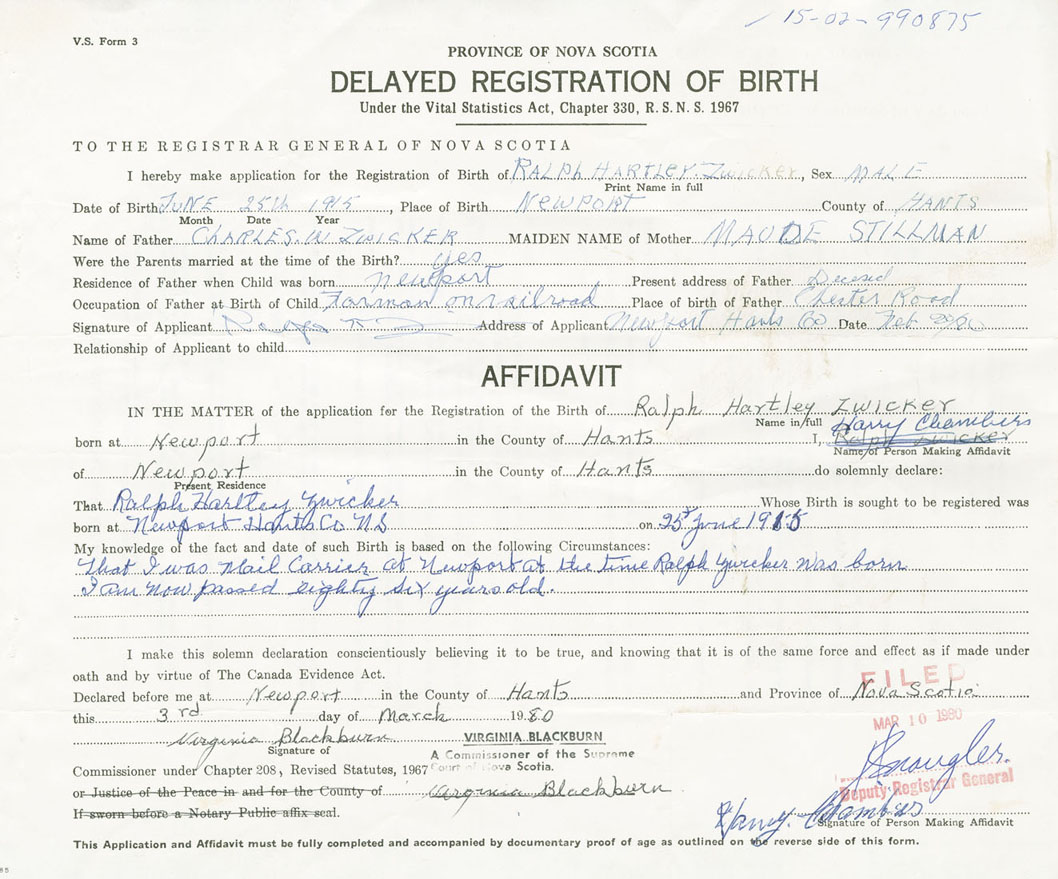 15-02-990875
V.S. Form 3
PROVINCE OF NOVA SCOTIA
DELAYED REGISTRATION OF BIRTH
Under the Vital Statistics Act, Chapter 330, R.S.N.S. 1967
TO THE REGISTRAR GENERAL OF NOVA SCOTIA
I hereby make application for the Registration of Birth of RALPH HARTLEY ZWICKER, Sex MALE
Print Name in full
Date of Birth JUNE 25th 1915, Place of Birth NEWPORT County of HANTS
Month Date Year
Name of Father CHARLES. W ZWICKER MAIDEN NAME of Mother MAUDE STILLMAN
Were the Parents married at the time of the Birth? yes
Residence of Father when Child was born Newport Present address of Father Decesed
Occupation of Father at Birth of Child Forman on railroad Place of birth of Father Chester Road
Signature of Applicant Address of Applicant Newport Hants Co Date Feb
Relationship of Applicant to child
AFFIDAVIT
IN THE MATTER of the application for the Registration of the Birth of Ralph Hartley Zwicker
Name in full Harry Chambers
born at Newport in the County of Hants I, Ralph Zwicker
Name of Person Making Affidavit
of Newport in the County of Hants do solemnly declare:
Present Residence
That Ralph Hartley Zwicker Whose Birth is sought to be registered was
born at Newport Hants Co NS on 25th June 1915
My knowledge of the fact and date of such Birth is based on the following Circumstances:
That I was Mail Carrier at Newport at the time Ralph Zwicker was born
I am now passed eighty six years old.
I make this solemn declaration conscientiously believing it to be true, and knowing that it is of the same force and effect as if made under
oath and by virtue of The Canada Evidence Act.
FILED
Declared before me at Newport in the County of Hants and Province of Nova Scotia
this 3rd day of March 1980
MAR 10 1980
Virginia Blackburn VIRGINIA BLACKBURN
Signature of A Commissioner of the Supreme
Commissioner under Chapter 208, Revised Statutes, 1967 Court of Nova Scotia.
or Justice of the Peace in and for the County of Virginia Blackburn
Deputy Registrar General
If sworn before a Notary Public affix seal.
Harry Chambers
Signature of Person Making Affidavit
This Application and Affidavit must be fully completed and accompanied by documentary proof of age as outlined on the reverse side of this form.